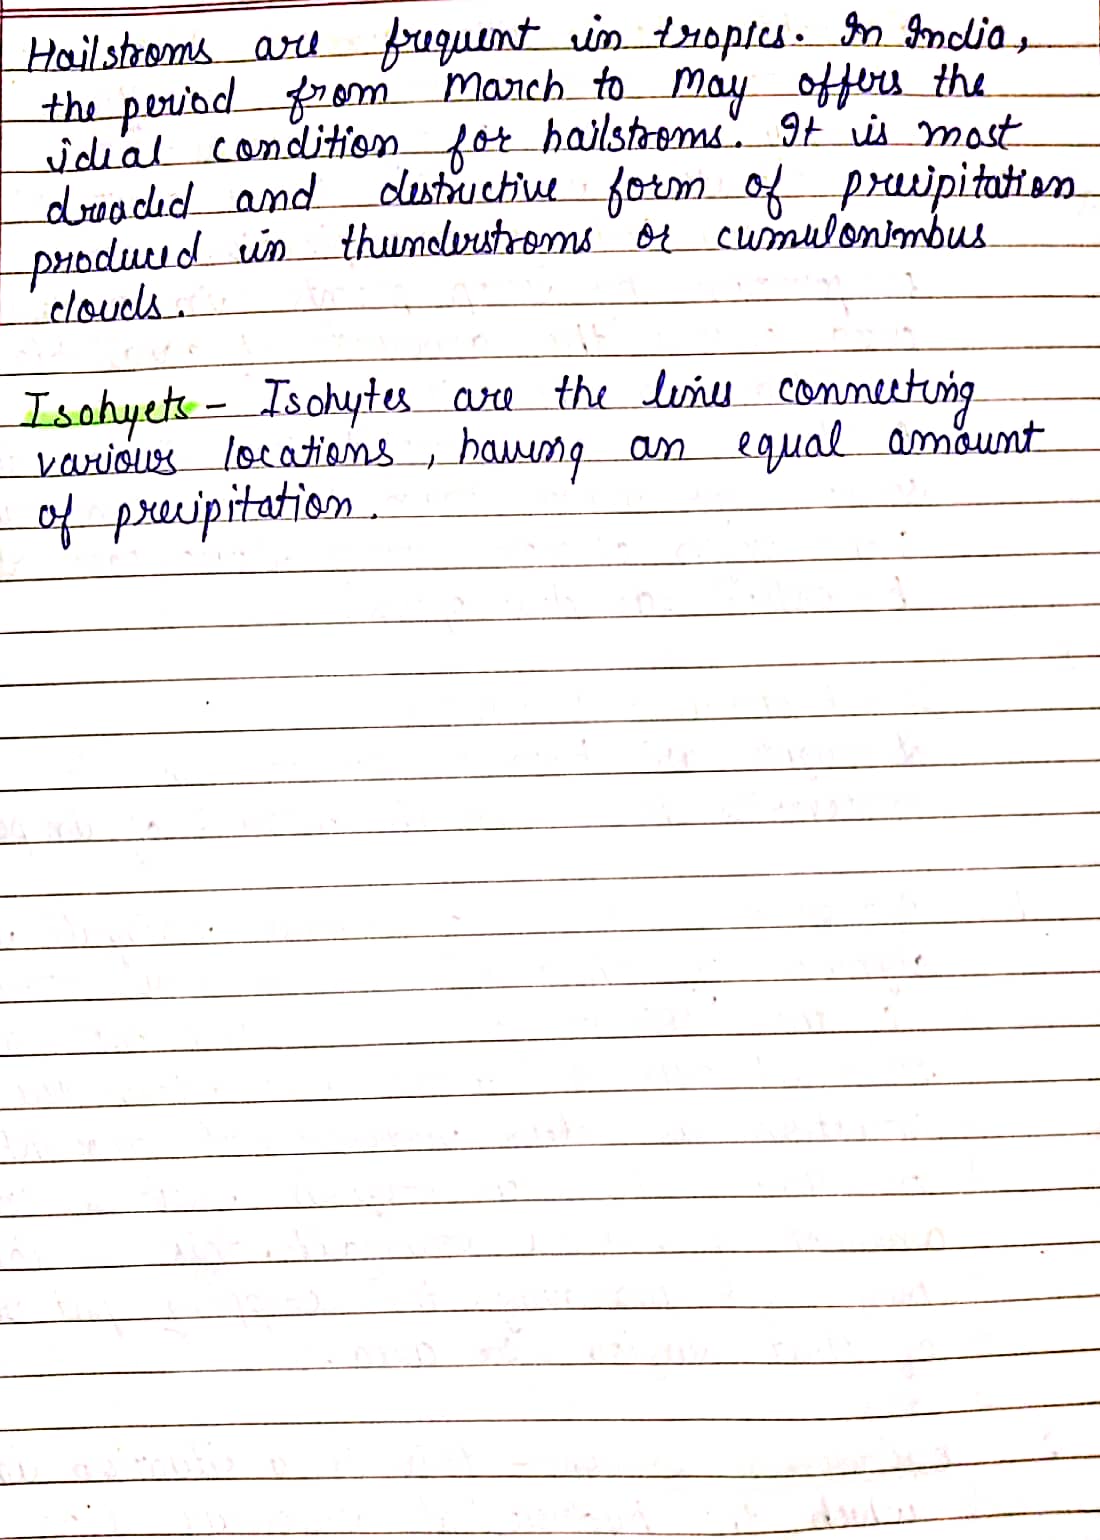 Hailstroms are frequent in tropics. In India,
the period from March to May offers the
ideal condition for hailstroms. It is most
dreaded and destructive form of precipitation
produced in thunderstroms or cumulonimbus
clouds.
Isohyets - Isohytes are the lines connecting
various locations, having an equal amount
of precipitation.